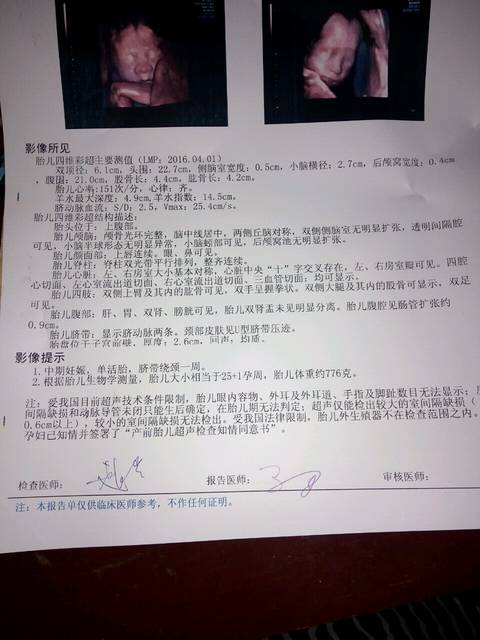 影像所见
胎儿四维彩超主要测值（LMP：2016.04.01）
双顶径：6.1cm，头围：22.7cm，侧脑室宽度：0.5cm，小脑横径：2.7cm，后颅窝宽度：0.4cm
，腹围：21.0cm，股骨长：4.4cm，肱骨长：4.2cm。
胎儿心率：151次/分，心律：齐。
羊水最大深度：4.9cm，羊水指数：14.5cm。
脐动脉血流：S/D：2.5，Vmax：25.4cm/s。
胎儿四维彩超结构描述：
胎头位于：上腹部。
胎儿颅脑：颅骨光环完整，脑中线居中，两侧丘脑对称，双侧侧脑室无明显扩张，透明间隔腔
可见，小脑半球形态无明显异常，小脑蚓部可见，后颅窝池无明显扩张。
胎儿颜面部：上唇连续。眼、鼻可见。
胎儿脊柱：脊柱双光带平行排列，整齐连续。
胎儿心脏：左、右房室大小基本对称，心脏中央“十”字交叉存在，左、右房室瓣可见。四腔
心切面、左心室流出道切面、右心室流出道切面、三血管切面：均可显示。
胎儿四肢：双侧上臂及其内的肱骨可见，双手呈握拳状。双侧大腿及其内的股骨可显示，双足
可见。
胎儿腹部：肝、胃、双肾、膀胱可见，胎儿双肾盂未见明显分离。胎儿腹腔见肠管扩张约
0.9cm。
胎儿脐带：显示脐动脉两条。颈部皮肤见U型脐带压迹。
胎盘位于子宫前壁，厚度：2.6cm，回声：均质。
影像提示
1. 中期妊娠，单活胎，脐带绕颈一周。
2. 根据胎儿生物学测量，胎儿大小相当于25+1孕周，胎儿体重约776克。
注：受我国目前超声技术条件限制，胎儿眼内容物、外耳及外耳道、手指及脚趾数目无法显示；房
间隔缺损和动脉导管未闭只能生后确定，在胎儿期无法判定；超声仅能检出较大的室间隔缺损（
0.6cm以上），较小的室间隔缺损无法检出。受我国法律限制，胎儿外生殖器不在检查范围之内。
孕妇已知情并签署了“产前胎儿超声检查知情同意书”。
检查医师： 报告医师： 审核医师：
注：本报告单仅供临床医师参考，不作任何证明。